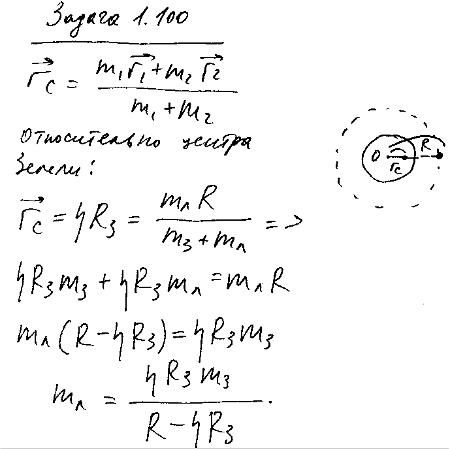 Задача 1.100
r⃗c = (m₁r⃗₁ + m₂r⃗₂) / (m₁ + m₂)
Относительно центра
Земли:
r⃗c = ηRз = mлR / (mз + mл) =>
ηRзmз + ηRзmл = mлR
mл(R − ηRз) = ηRзmз
mл = ηRзmз / (R − ηRз).
O rc R